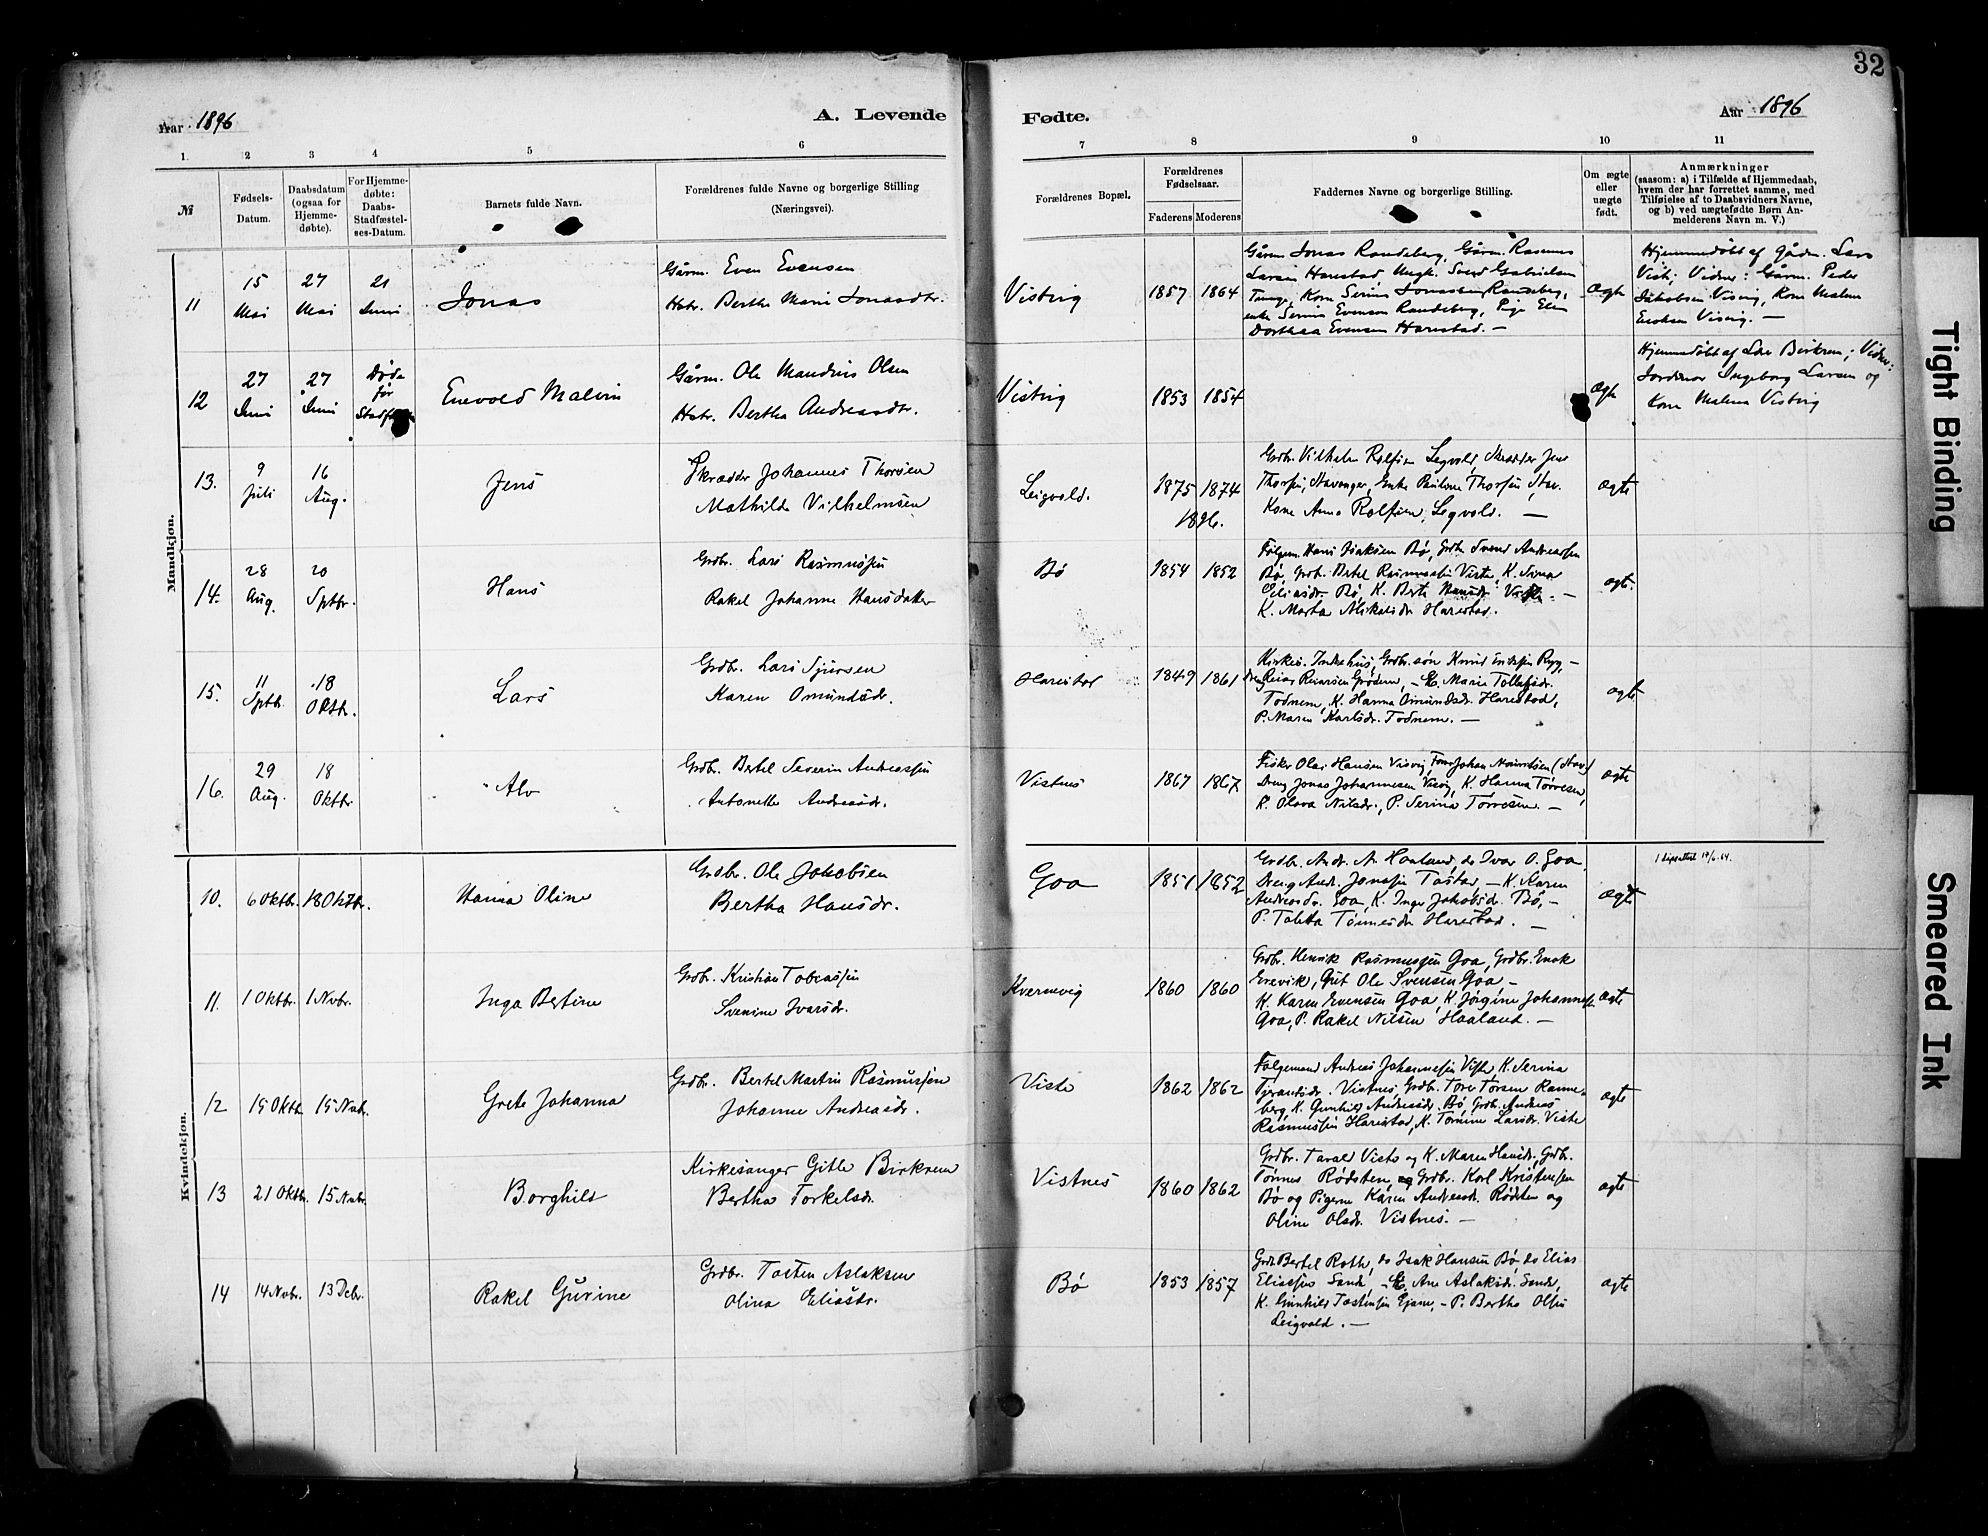 32
Aar 1896
A. Levende
Fødte.
Aar 1896
1 2 3 4 5 6 7 8 9 10 11
№
Fødsels-
Datum.
Daabsdatum
(ogsaa for
Hjemme-
døbte).
For Hjemme-
døbte:
Daabs-
Stadfæstel-
ses-Datum.
Barnets fulde Navn.
Forældrenes fulde Navne og borgerlige Stilling
(Næringsvei).
Forældrenes Bopæl.
Forældrenes
Fødselsaar.
Faderens Moderens
Faddernes Navne og borgerlige Stilling.
Om ægte
eller
uægte
født.
Anmærkninger
(saasom: a) i Tilfælde af Hjemmedaab,
hvem der har forrettet samme, med
Tilføielse af to Daabsvidners Navne,
og b) ved uægtefødte Børn An-
melderens Navn m. V.)
Mandkjøn.
11
15
Mai
27
Mai
21
Juni
Jonas
Gårm. Even Evensen
Hstr. Berthe Marie Jonasdtr.
Visting
1857 1864
Gårm Jonas Randeberg, Gårm. Rasmus
Larsen Harestad Ungk. Svend Gabrielsen
Tunge, Kone Serine Jonassen Randeberg,
enke Serine Evensen Randeberg, Pige Elen
Dorthea Evensen Harestad. —
Ægte
Hjemmedøbt af gådm. Lars
Vist; Vidner: Gårm. Peder
Jakobsen Visvig, Kone Malene
Visvig. —
12
27
Juni
27
Juni
Døde
før
Enevold Malvin
Gårm. Ole Mandius Olsen
Hstr. Bertha Andreasdtr.
Visting
1853 1854
Ægte
Hjemmedøbt af Birkrem; Vidner:
Jordmor Ingeborg Larsen og
Kone Malene Visting
13.
9
Juli
16
Aug.
Jens
Skrædder Johannes Thorsen
Mathilde Vilhelmsen
Leigvold.
1875 1874
1896.
Grdbr. Vilhelm Rolfsen Legvold, Skrædder Jens
Thorsen, Stavanger, Enke Pauline Thorsen, Stav.
Kone Anna Rolfsen, Legvold. —
ægte
14.
28
Aug.
20
Sptbr.
Hans
Grdbr. Lars Rasmussen
Rakel Johanne Hansdatter
Bø
1854 1852
Følgem. Hans Isaksen Bø, Grdb. Svend Andreassen
Bø, Grdb. Bertel Rasmussen Viste, K. Sina
Eliasdr. Bø, K. Berte Hansdr. Viste. —
K. Marta Mikalsdr. Harestad.
ægte.
15.
11
Sptbr.
18
Oktbr.
Lars
Grdbr. Lars Sjursen
Karen Omundsdr.
Harestad
1849 1861
Kirkes. Inkahus, Grdbr.søn Knud Endresen Ryg, —
Dreng Reiar Reiarsen Grødem, — K. Marie Tollefsdr.
Todnem, K. Hanna Omundsdr. Harestad,
P. Maren Karlsdr. Todnem. —
ægte
16.
29
Aug.
18
Oktbr.
Alv
Grdbr. Bertel Severin Andreassen
Antonette Andreasdr.
Vistnes
1867 1867
Fisker Olai Hansen Visvig, Johan (Stav.)
Dreng Jonas Johannesen Visvig, K. Hanna Tørresen,
K. Olava Nilsdr., P. Serina Tørresen. —
ægte
Kvindekjøn.
10.
6 Oktbr.
18 Oktbr.
Hanna Oline
Grdbr. Ole Jakobsen
Bertha Hansdr.
Goa
1851 1852
Grdbr. Andr. A. Haaland, do Ivar O. Goa,
Dreng Andr. Jonassen Tastad, — K. Karen
Andreasdr. Goa, K. Inger Jakobsdr. Bø, —
P. Taletta Tønnesdr. Harestad. —
ægte
1 dåpsattest 19/6.64.
11.
1 Oktbr.
1 Nvbr.
Inga Bertine
Grdbr. Kristian Tobiassen
Svenine Ivarsdr.
Kvernevig
1860 1860
Grdbr. Henrik Rasmussen Goa, Grdbr. Enok
Grevik, Gut Ole Svensen Goa —
K. Karen Evensen Goa, K. Jørgine Johannesen
Goa, P. Rakel Nilsen Haaland. —
ægte
12
15 Oktbr.
15 Nvbr.
Grete Johanna
Grdbr. Bertel Martin Rasmussen
Johanne Andreasdr.
Viste
1862 1862
Følgemand Andreas Johannessen Viste, K. Serina
Tjerandsdr. Vistnes, Grdbr. Tore Torsen Rande-
berg K. Gunhild Andreasdr. Bø, Grdbr. Andreas
Rasmussen Harestad, K. Tomine Larsdr. Viste
ægte
13
21 Oktbr.
15 Nvbr.
Borghild
Kirkesanger Gitle Birkrem
Bertha Torkelsdr.
Vistnes
1860 1862
Grdbr. Tarald Viste og K. Maren Hansdr., Grdb.
Tønnes Rødsten, og Grdbr. Karl Kristensen
Bø og Pigerne Karen Andreasdr. Rødsten og
Oline Olsdr. Vistnes. —
ægte
14
14 Nvbr.
13 Debr.
Rakel Gurine
Grdbr. Tosten Aslaksen
Olina Eliasdr.
Bø
1853 1857
Grdb. Bertel Roth, do Isak Hansen Bø, do Elias
Eliassen Sande, — K. Ane Aslaksdr. Sande,
K. Gunhild Tostensen — P. Bertha Olsen
Leigvold. —
ægte
Tight Binding
Smeared Ink